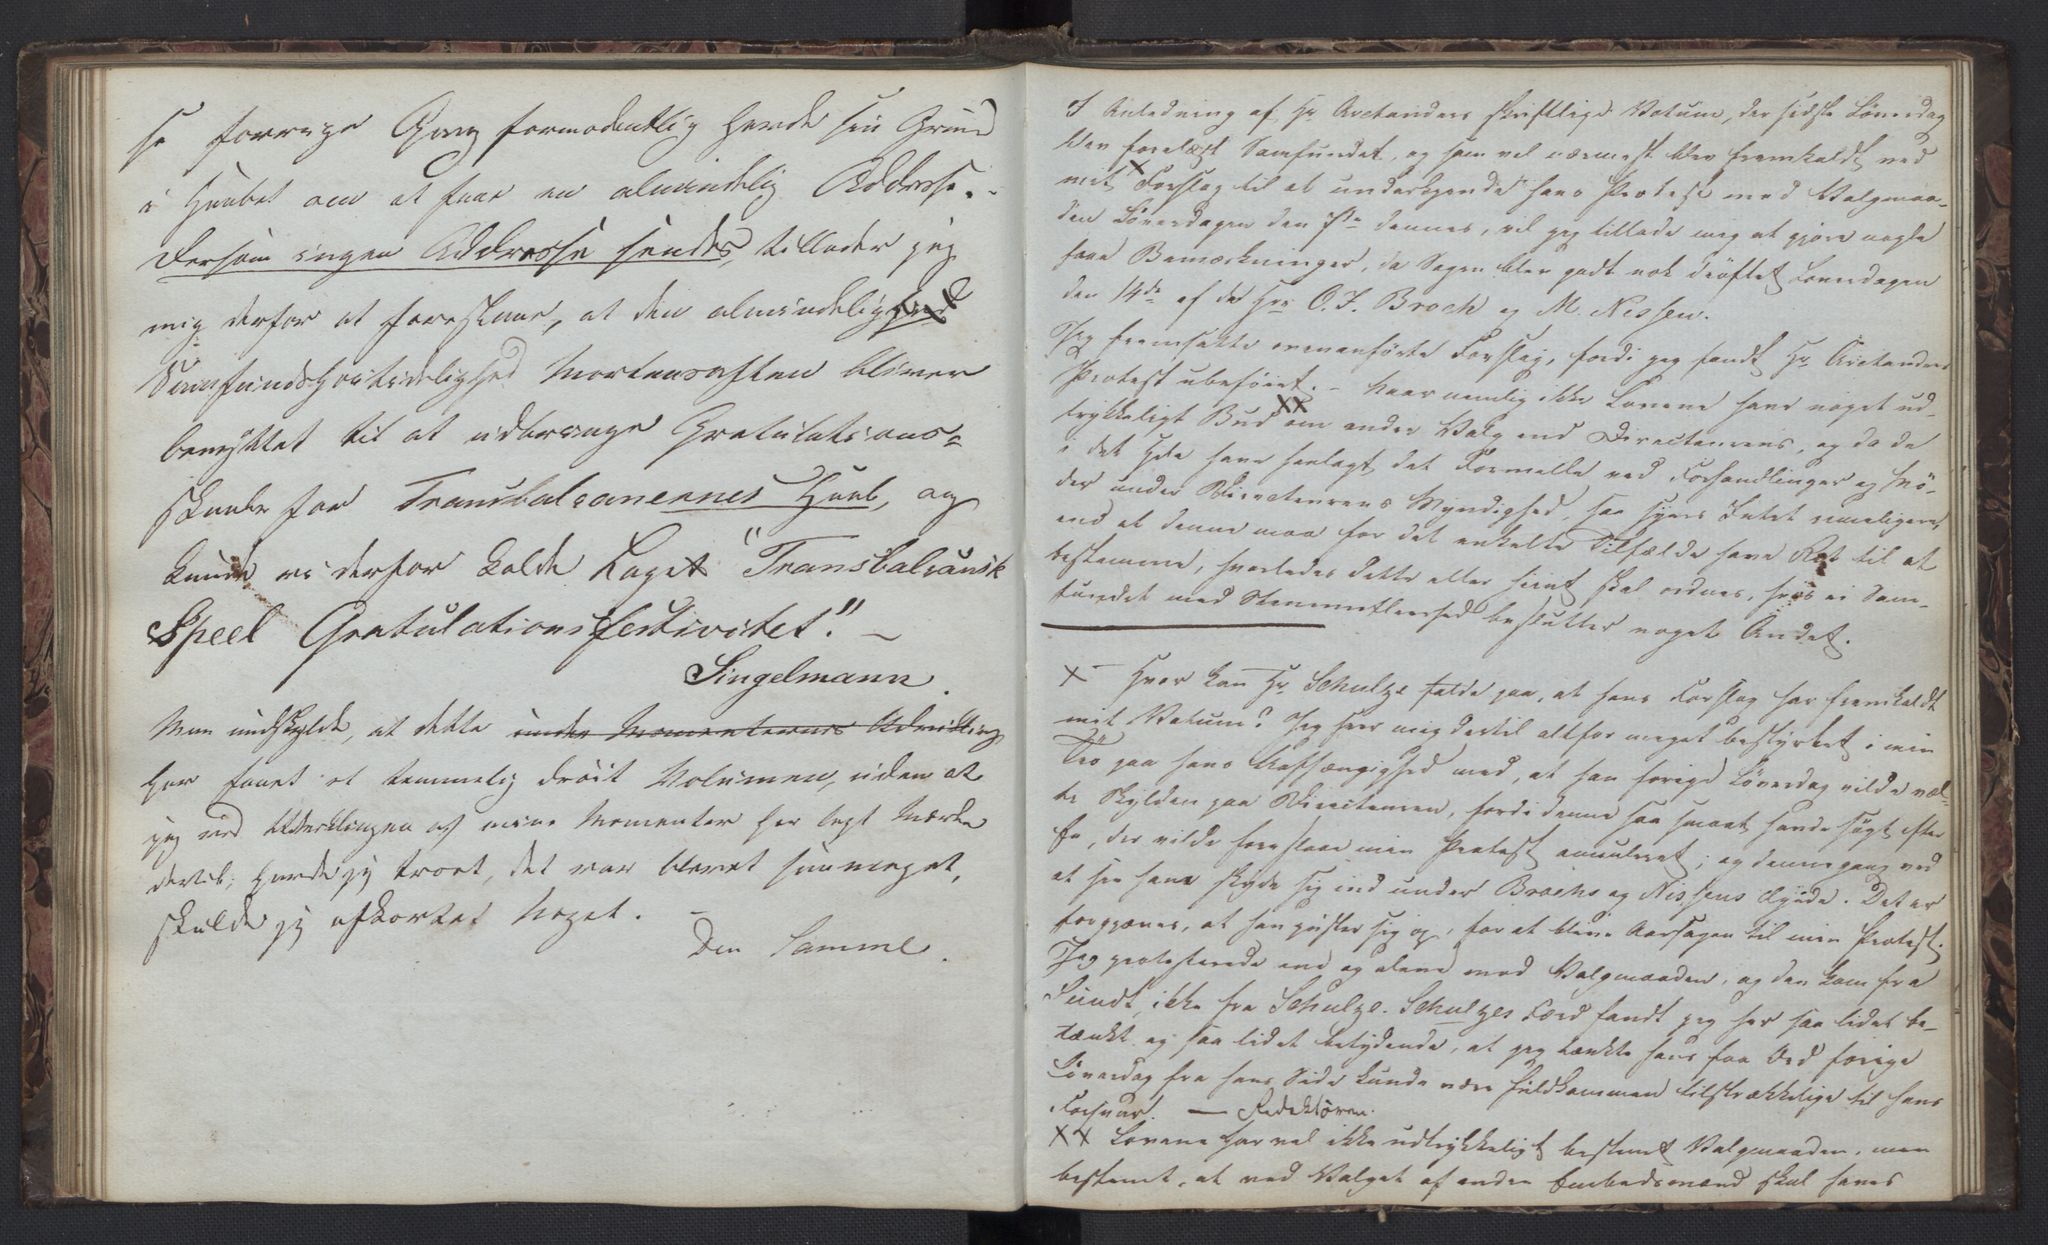 se forrige Gang formodentlig havde sin Grund
i Haabet om at faae en almindelig Addresse. -
Dersom ingen Addresse sendes, tillader jeg
mig derfor at foreslaae, at den almindelige
Samfundshøitidelighed Mortensaften bliver
benyttet til at udbringe Gratulations-
skaaler for Transbalcanernes Haab, og
kunde vi derfor kalde Laget "Transbalcansk
Speel Gratulationsfestivitet." —
Singelmann.
Man undskylde, at dette under Momenternes Udvikling
har faaet et temmelig drøit Volumen, uden at
jeg ved Udviklingen af mine Momenter har lagt Mærke
dertil; havde jeg troet, det var blevet saa meget,
skulde jeg afkortet Noget. —
Den Samme.
I Anledning af Hr Arctanders skriftlige Votum, der sidste Løverdag
blev forelæst Samfundet, og som vel nærmest blev fremkaldt ved
mit X Forslag til at underkjende hans Protest mod Valgmaa-
den Løverdagen den 7de dennes, vil jeg tillade mig at gjøre nogle
faae Bemærkninger, da Sagen blev godt nok drøftet Løverdagen
den 14de af de Hrr O. J. Broch og M. Nissen.
Jeg fremsatte ovenanførte Forslag, fordi jeg fandt Hr Arctanders
Protest ubeføiet. - Naar nemlig ikke Lovene have noget ud-
trykkeligt Bud XX om andre Valg end Directeurens, og da de
i det Hele have henlagt det Formelle ved Forhandlinger og Mø-
der under Directeurens Myndighed, saa synes Intet rimeligere,
end at denne maa for det enkelte Tilfælde have Ret til at
bestemme, hvorledes dette eller hiint skal ordnes, hvis ei Sam-
fundet med Stemmefleerhed beslutter noget Andet.
X — Hvor kan Hr Schulze falde paa, at hans Forslag har fremkaldt
mit Votum? Jeg seer mig dertil altfor meget bestyrket i min
Tro paa hans Uafhængighed med, at han forige Løverdag vilde væl-
te Skylden paa Directeuren, fordi denne saa smaat havde søgt efter
En, der vilde foreslaae min Protest annulleret; og denne gang ved
at see ham skyde sig ind under Brochs og Nissens Hynde. Det er
forgjæves, at han puster sig op, for at blive Aarsagen til min Protest.
Jeg protesterede ene og alene mod Valgmaaden, og den kom fra
Sundt, ikke fra Schulze. Schulzes Færd fandt jeg her saa lidet be-
tænkt og saa lidet betydende, at jeg tænkte hans faa Ord forige
Løverdag fra hans Side kunde være fuldkommen tilstrækkelige til hans
Forsvar. — Redaktøren.
XX Lovene har vel ikke udtrykkeligt bestemt Valgmaaden, men
bestemt, at ved Valget af anden Embedsmænd skal haves